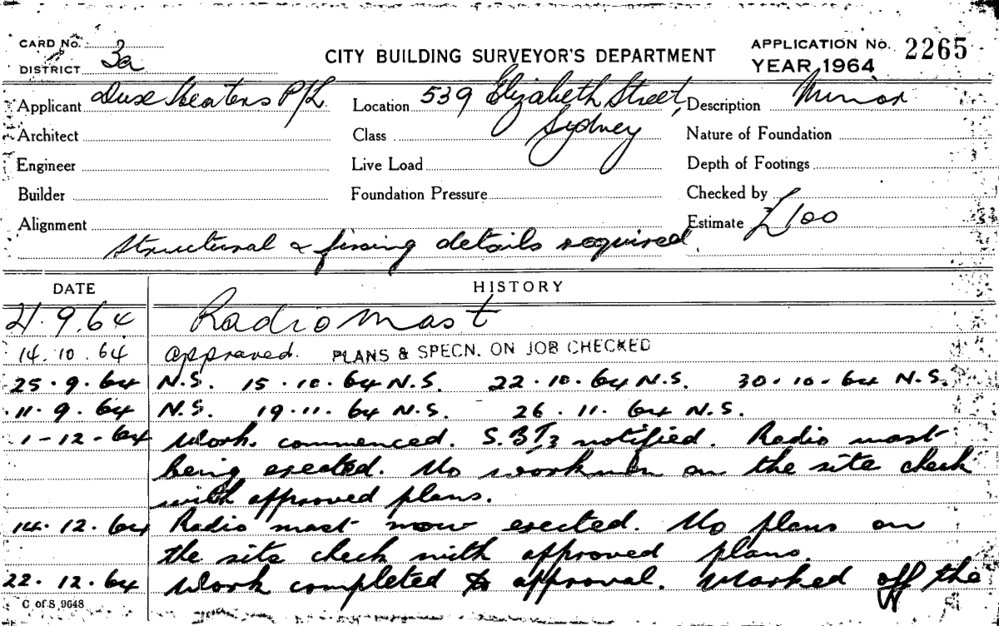 CARD No.
DISTRICT 3a
CITY BUILDING SURVEYOR'S DEPARTMENT
APPLICATION No. 2265
YEAR, 1964
Applicant Duxe Heaters P/L Location 539 Elizabeth Street, Description Minor
Architect Class Sydney Nature of Foundation
Engineer Live Load Depth of Footings
Builder Foundation Pressure Checked by
Alignment Estimate £100
Structural & fixing details required.
DATE HISTORY
21.9.64 Radio Mast
14.10.64 approved. PLANS & SPECN. ON JOB CHECKED
25.9.64 N.S. 15.10.64 N.S. 22.10.64 N.S. 30-10-64 N.S.
11.9.64 N.S. 19.11.64 N.S. 26.11.64 N.S.
1-12-64 Work. commenced. notified. Radio mast
being erected. No workmen on the site check
with approved plans.
14.12.64 Radio mast now erected. No plans on
the site check with approved plans.
22.12.64 Work completed to approval. Marked off the
C of S 9648